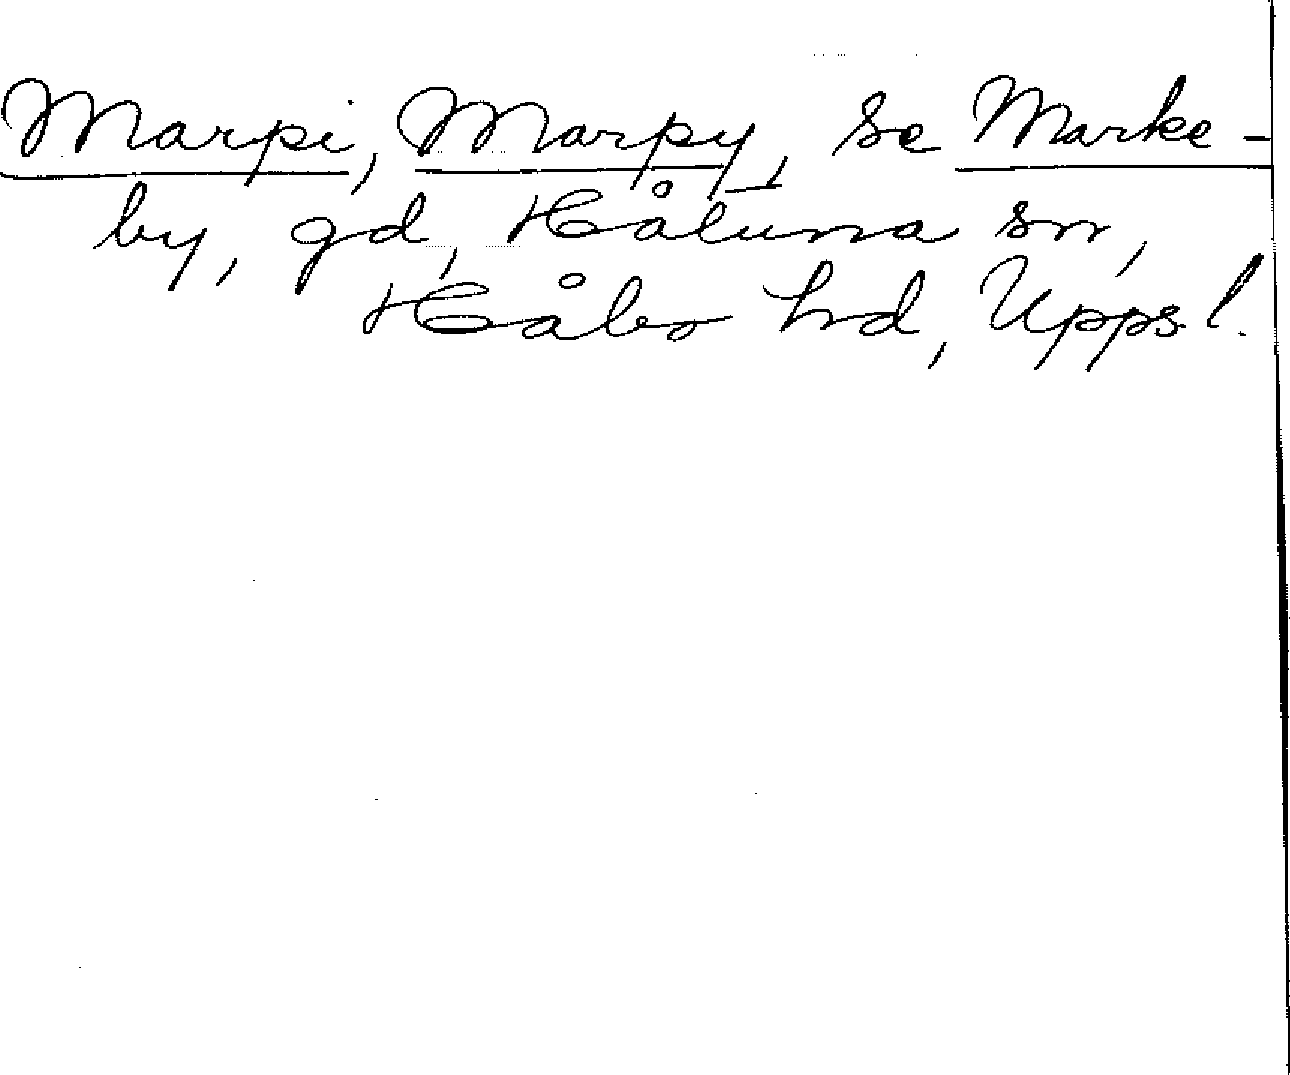 Marpi, Marpy, se Marke-
by, gd, Håtuna sn,
Håbo hd, Upps. l.